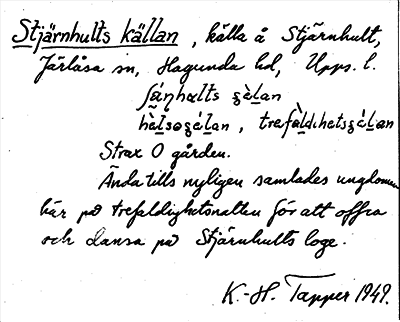 Stjärnhults källan, källa å Stjärnhult,
Järlåsa sn, Hagunda hd, Upps. l.
ʃä́ɳhʉlts ʂè̱lan
hè̱lsoʂé̱lan, trefàldıhetsʂé̱lan
Strax O gården.
Ända tills nyligen samlades ungdomen
här på trefaldighetsnatten för att offra
och dansa på Stjärnhults loge.
K.-H. Tapper 1949.